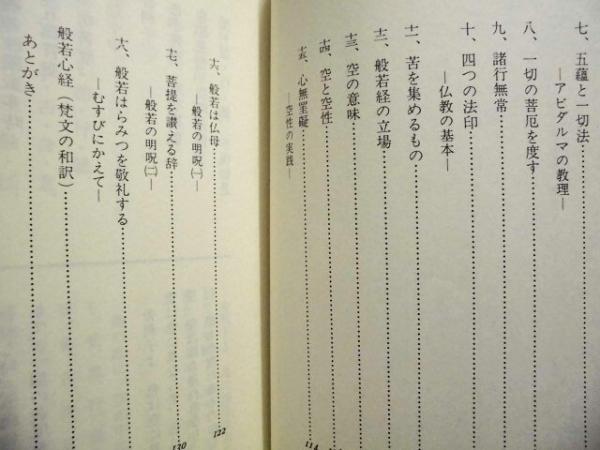 七、五蘊と一切法
―アビダルマの教理―
八、一切の苦厄を度す
九、諸行無常
十、四つの法印
―仏教の基本―
十一、苦を集めるもの
十二、般若経の立場
十三、空の意味
十四、空と空性
十五、心無罣礙
―空性の実践―
114
十六、般若は仏母
―般若の明呪㈠―
122
十七、菩提を讃える辞
―般若の明呪㈡―
130
十八、般若はらみつを敬礼する
―むすびにかえて―
般若心経（梵文の和訳）
あとがき